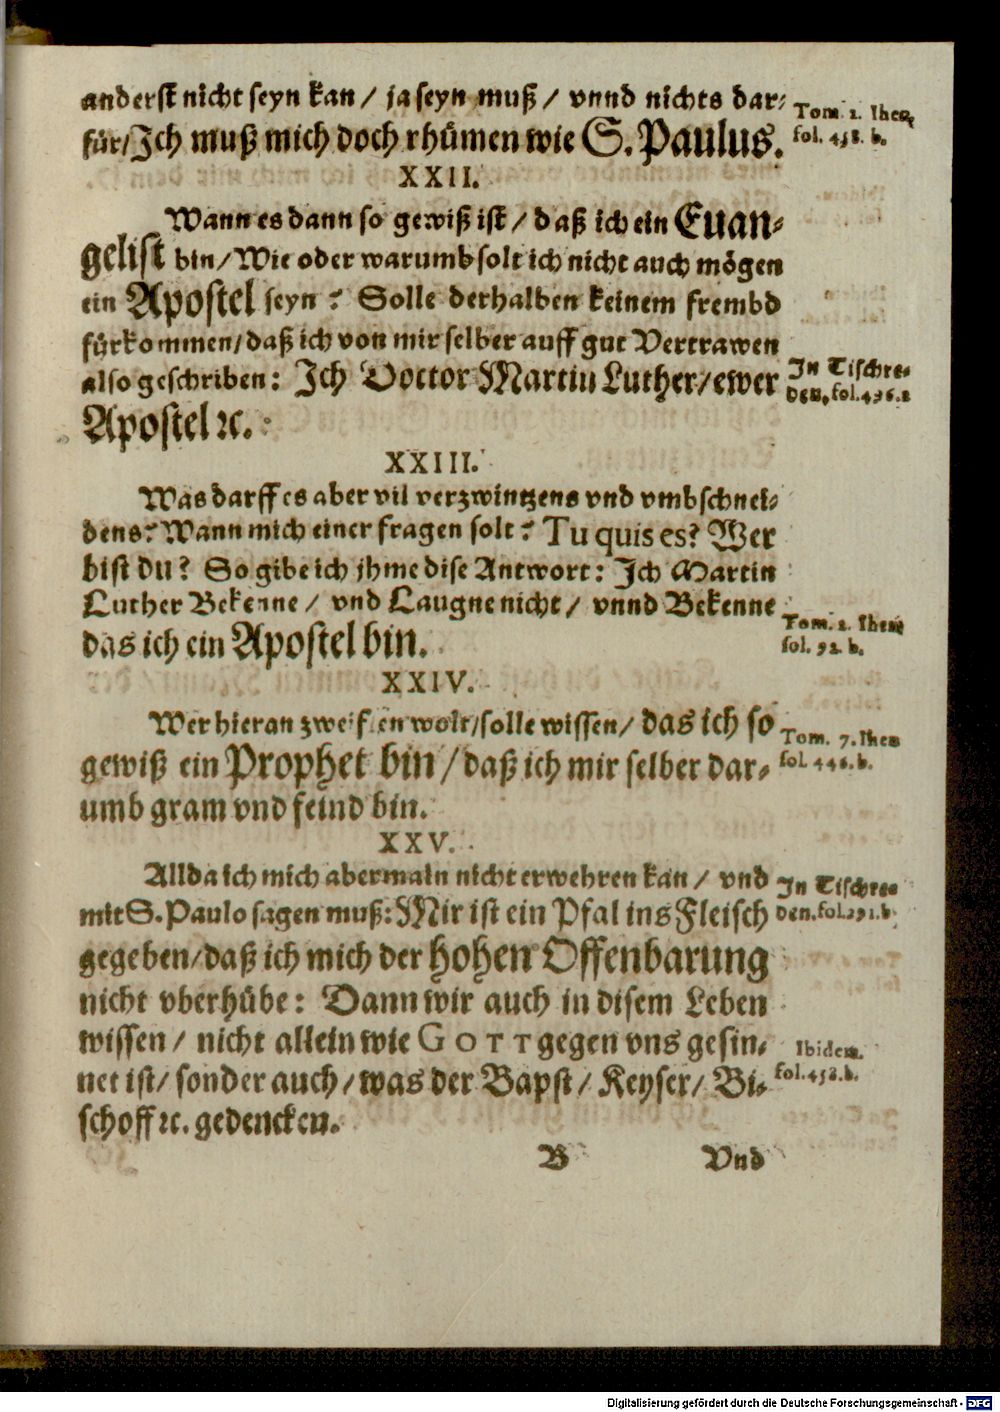 anderst nicht seyn kan / ja seyn muß / vnnd nichts dar-
für/ Ich muß mich doch rhümen wie S. Paulus.
Tom. 2. Ihen.
fol. 458. b.
XXII.
Wann es dann so gewiß ist / daß ich ein Euan-
gelist bin/ Wie oder warumb solt ich nicht auch mögen
ein Apostel seyn? Solle derhalben keinem frembd
fürkommen/ daß ich von mir selber auff gut Vertrawen
also geschriben: Ich Doctor Martin Luther/ ewer
Apostel ꝛc.
In Tischre-
den, fol.
XXIII.
Was darff es aber vil verzwintzens vnd vmbschnei-
dens? Wann mich einer fragen solt? Tu quis es? Wer
bist du? So gibe ich jhme dise Antwort: Ich Martin
Luther Bekenne / vnd Laugne nicht / vnnd Bekenne
das ich ein Apostel bin.
Tom. 2. Ihen
fol. 92. b.
XXIV.
Wer hieran zweiflen wolt/ solle wissen / das ich so
gewiß ein Prophet bin / daß ich mir selber dar-
umb gram vnd feind bin.
Tom. 7. Ihen
fol b.
XXV.
Allda ich mich abermaln nicht erwehren kan / vnd
mit S. Paulo sagen muß: Mir ist ein Pfal ins Fleisch
gegeben/ daß ich mich der hohen Offenbarung
nicht vberhübe: Dann wir auch in disem Leben
wissen / nicht allein wie GOTT gegen vns gesin-
net ist / sonder auch / was der Bapst / Keyser / Bi-
schoff ꝛc. gedencken.
In Tischre-
den. fol. 291. b
Ibidem.
fol. 458. b.
B Vnd
Digitalisierung gefördert durch die Deutsche Forschungsgemeinschaft - DFG